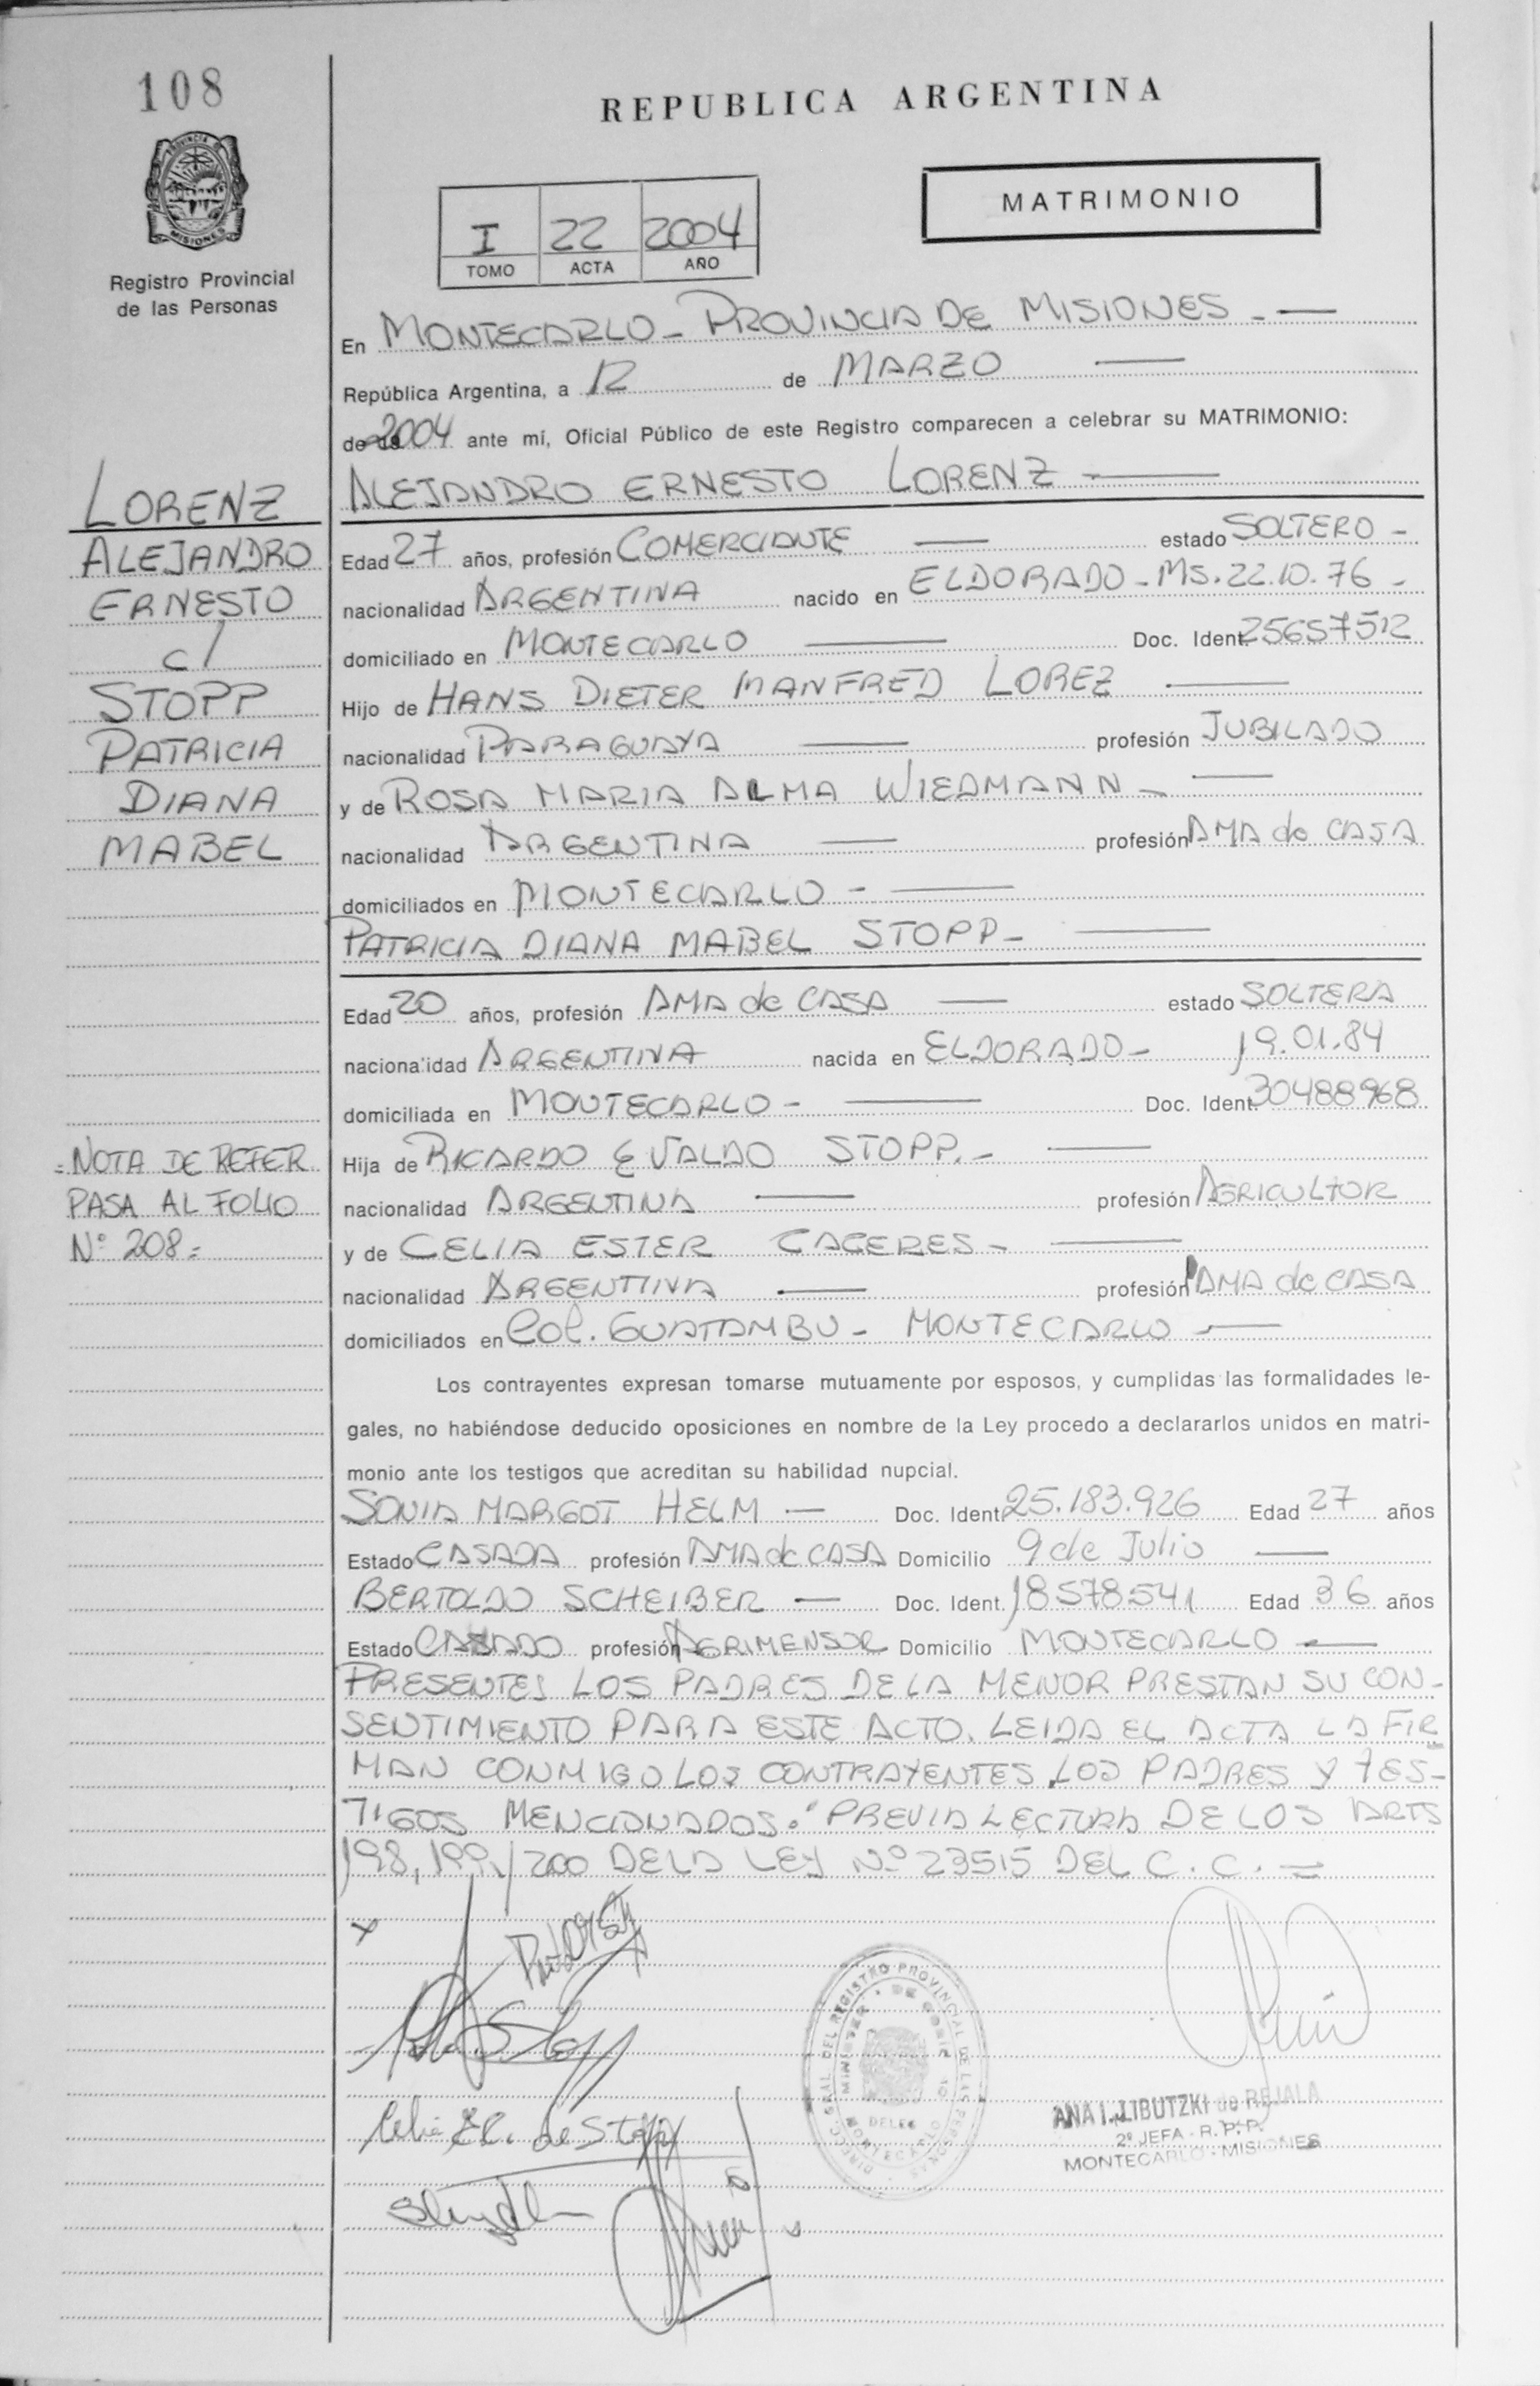 108
REPUBLICA ARGENTINA
PROVINCIA DE
MISIONES
Registro Provincial
de las Personas
MATRIMONIO
I 22 2004
TOMO ACTA AÑO
En MONTECARLO - PROVINCIA DE MISIONES -
República Argentina, a 12 de MARZO
de 2004 ante mí, Oficial Público de este Registro comparecen a celebrar su MATRIMONIO:
ALEJANDRO ERNESTO LORENZ
LORENZ
ALEJANDRO
ERNESTO
c/
STOPP
PATRICIA
DIANA
MABEL
Edad 27 años, profesión COMERCIANTE estado SOLTERO -
nacionalidad ARGENTINA nacido en ELDORADO - MS. 22.10.76 -
domiciliado en MONTECARLO Doc. Ident. 25657512
Hijo de HANS DIETER MANFRED LOREZ
nacionalidad PARAGUAYA profesión JUBILADO
y de ROSA MARIA ALMA WIEDMANN -
nacionalidad ARGENTINA profesión AMA de CASA
domiciliados en MONTECARLO -
PATRICIA DIANA MABEL STOPP -
Edad 20 años, profesión AMA de CASA estado SOLTERA
nacionalidad ARGENTINA nacida en ELDORADO - 19.01.84
domiciliada en MONTECARLO - Doc. Ident. 30488968
Hija de RICARDO EVALDO STOPP. -
nacionalidad ARGENTINA profesión AGRICULTOR
y de CELIA ESTER CACERES -
nacionalidad ARGENTINA profesión AMA de CASA
domiciliados en Col. GUATAMBU - MONTECARLO
= NOTA DE REFER
PASA AL FOLIO
Nº 208 =
Los contrayentes expresan tomarse mutuamente por esposos, y cumplidas las formalidades le-
gales, no habiéndose deducido oposiciones en nombre de la Ley procedo a declararlos unidos en matri-
monio ante los testigos que acreditan su habilidad nupcial.
SONIA MARGOT HELM Doc. Ident. 25.183.926 Edad 27 años
Estado CASADA profesión AMA de CASA Domicilio 9 de Julio
BERTOLDO SCHEIBER Doc. Ident. 18578541 Edad 36 años
Estado CASADO profesión AGRIMENSOR Domicilio MONTECARLO
PRESENTES LOS PADRES DE LA MENOR PRESTAN SU CON-
SENTIMIENTO PARA ESTE ACTO. LEIDA EL ACTA LA FIR
MAN CONMIGO LOS CONTRAYENTES, LOS PADRES Y TES-
TIGOS MENCIONADOS." PREVIA LECTURA DE LOS ARTS
198, 199, / 200 DE LA LEY Nº 23515 DEL C. C. =
x
Celia de Stopp
DIRECC. GRAL. DEL REGISTRO PROVINCIAL DE LAS PERSONAS
MONTECARLO
ANA I. LIBUTZKI de REJALA
2ª JEFA - R. P. P.
MONTECARLO - MISIONES